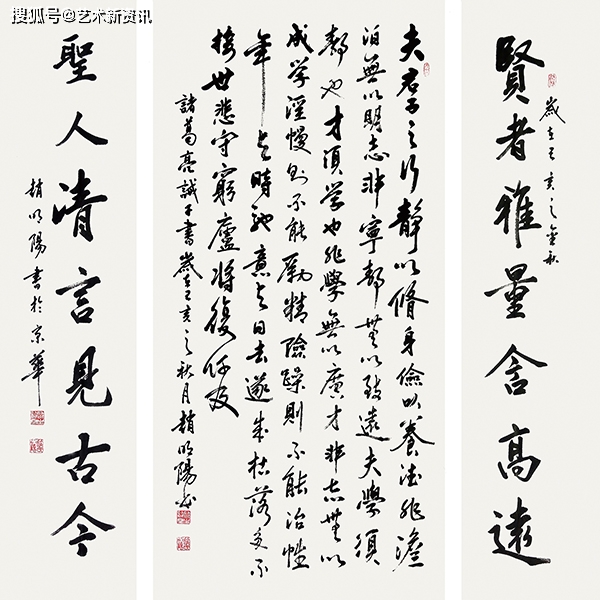 搜狐号@艺术新资讯
賢者雅量含高遠
歲在己亥之金秋
夫君子之行靜以脩身儉以養德非澹
泊無以明志非寧靜無以致遠夫學須
靜也才須学也非學無以廣才非志無以
成学淫慢則不能勵精險躁則不能冶性
年与時馳意与日去遂成枯落多不
接世悲守窮廬將復何及
諸葛亮誡子書歲在己亥之秋月趙明陽书
聖人清言見古今
趙明陽書於京華